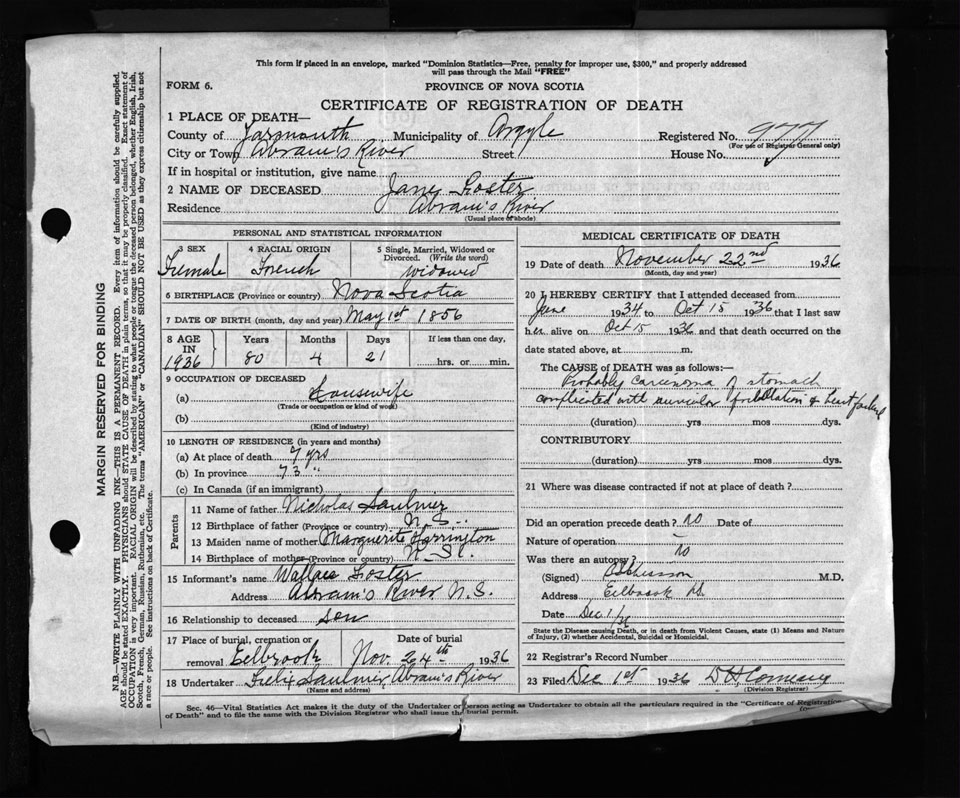 This form if placed in an envelope, marked "Dominion Statistics—Free, penalty for improper use, $300," and properly addressed
will pass through the Mail "FREE"
FORM 6.
PROVINCE OF NOVA SCOTIA
CERTIFICATE OF REGISTRATION OF DEATH
1 PLACE OF DEATH—
County of Yarmouth Municipality of Argyle Registered No. 977
(For use of Registrar General only)
City or Town Abram's River Street House No.
If in hospital or institution, give name
2 NAME OF DECEASED Jane Foster
Residence Abram's River
(Usual place of abode)
PERSONAL AND STATISTICAL INFORMATION
3 SEX 4 RACIAL ORIGIN 5 Single, Married, Widowed or
Divorced. (Write the word)
Female French widowed
6 BIRTHPLACE (Province or country) Nova Scotia
7 DATE OF BIRTH (month, day and year) May 1st 1856
8 AGE IN 1936 Years Months Days If less than one day,
80 4 21 hrs. or min.
9 OCCUPATION OF DECEASED
(a) Housewife
(Trade or occupation or kind of work)
(b)
(Kind of industry)
10 LENGTH OF RESIDENCE (in years and months)
(a) At place of death 7 yrs
(b) In province 73 "
(c) In Canada (if an immigrant)
Parents
11 Name of father Nicholas Saulnier
12 Birthplace of father (Province or country) N.S.
13 Maiden name of mother Marguerite Harrington
14 Birthplace of mother (Province or country) N.S.
15 Informant's name Wallace Foster
Address Abram's River N.S.
16 Relationship to deceased son
17 Place of burial, cremation or Date of burial
removal Eelbrook Nov. 24th 1936
18 Undertaker Felix Saulnier, Abram's River
(Name and address)
MEDICAL CERTIFICATE OF DEATH
19 Date of death November 22nd 1936
(Month, day and year)
20 I HEREBY CERTIFY that I attended deceased from
June 1934 to Oct 15 1936 that I last saw
her alive on Oct 15 1936 and that death occurred on the
date stated above, at m.
The CAUSE of DEATH was as follows:—
Probably carcinoma of stomach
complicated with auricular fribillation & heart failure
(duration) yrs mos dys.
CONTRIBUTORY
(duration) yrs. mos. dys.
21 Where was disease contracted if not at place of death?
Did an operation precede death? no Date of
Nature of operation —
Was there an autopsy? no
(Signed) M.D.
Address Eelbrook N.S.
Date Dec 1/36
State the Disease causing Death, or in death from Violent Causes, state (1) Means and Nature
of Injury, (2) whether Accidental, Suicidal or Homicidal.
22 Registrar's Record Number
23 Filed Dec 1st 1936 D H Comeau
(Division Registrar)
Sec. 46—Vital Statistics Act makes it the duty of the Undertaker or person acting as Undertaker to obtain all the particulars required in the "Certificate of Registration
of Death" and to file the same with the Division Registrar who shall issue the burial permit.
MARGIN RESERVED FOR BINDING
N.B.—WRITE PLAINLY WITH UNFADING INK—THIS IS A PERMANENT RECORD. Every item of information should be carefully supplied.
AGE should be stated EXACTLY. PHYSICIANS should STATE CAUSE OF DEATH in plain terms, so that it may be properly classified. Exact statement of
OCCUPATION is very important. RACIAL ORIGIN will be described by stating to what people or tongue the deceased person belonged, whether English, Irish,
Scotch, French, German, Russian, Ruthenian, etc. The terms "AMERICAN" or "CANADIAN" SHOULD NOT BE USED as they express citizenship but not
a race or people. See instructions on back of Certificate.